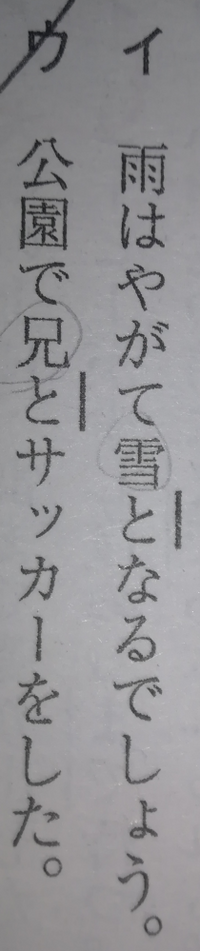 イ 雨はやがて雪となるでしょう。
ウ 公園で兄とサッカーをした。